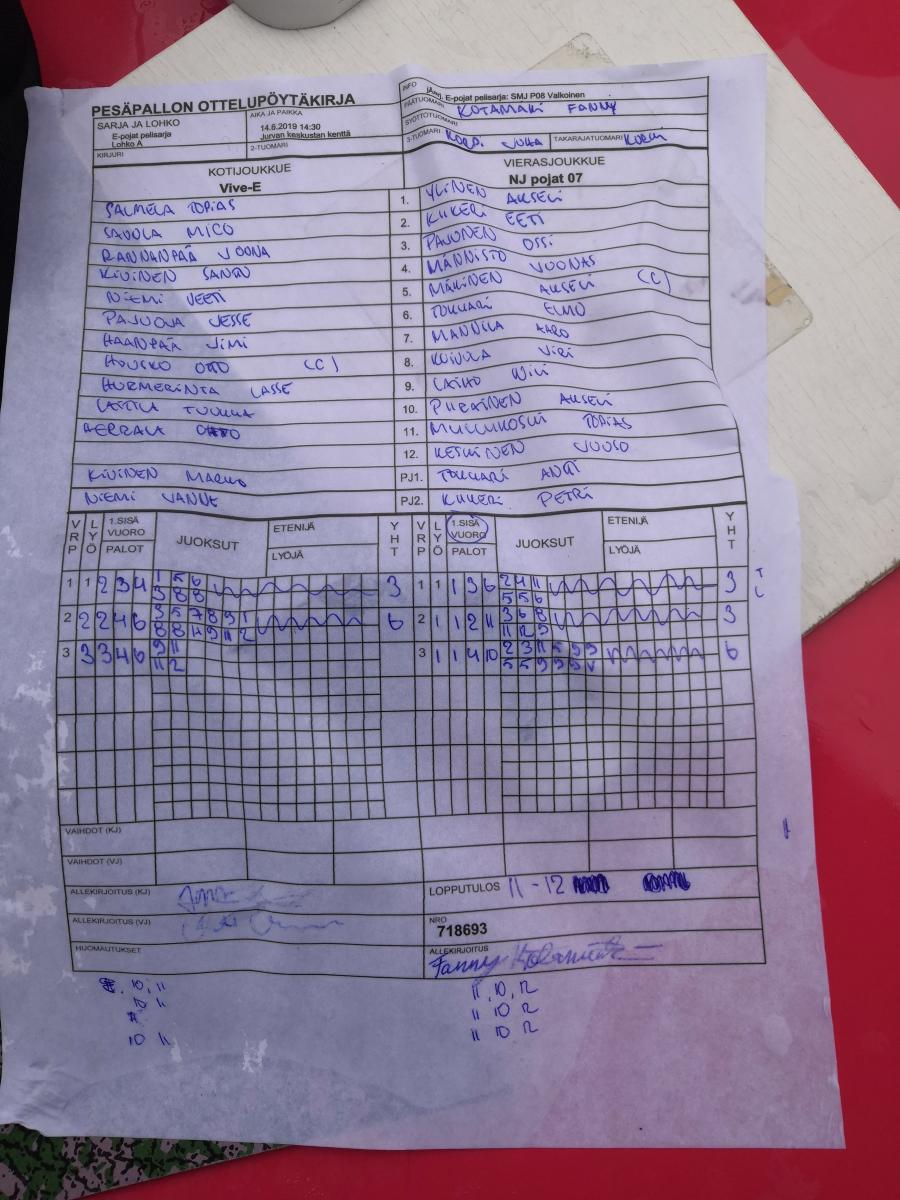 PESÄPALLON OTTELUPÖYTÄKIRJA
SARJA JA LOHKO
E-pojat pelisarja
Lohko A
AIKA JA PAIKKA
14.6.2019 14:30
Jurvan keskustan kenttä
KIRJURI
2-TUOMARI
INFO
E-pojat pelisarja: SMJ P08 Valkoinen
PÄÄTUOMARI KOTAMÄKI FANNY
SYÖTTÖTUOMARI
3-TUOMARI KORPI JUKA TAKARAJATUOMARI
KOTIJOUKKUE
Vive-E
VIERASJOUKKUE
NJ pojat 07
SALMELA TOPIAS 1. YLINEN AKSELI
SAVOLA MICO 2. KIIKERI EETI
RANNANPÄÄ JOONA 3. PAJUNEN OSSI
KIVINEN 4. MÄNNISTÖ JOONAS
NIEMI VEETI 5. MÄKINEN AKSELI (C)
PAJUOJA JESSE 6. TOKKARI ELMO
HAANPÄÄ JIMI 7. MANNILA AARO
HOUSKO OTTO (C) 8. KOIVULA JIRI
HURMERINTA LASSE 9. LAIHO
LATTILA TUUKKA 10. PIIRAINEN AKSELI
OTTO 11. MULLUKOSKI TOPIAS
12. KESKINEN JUUSO
KIVINEN MARKO PJ1. TOKKARI ANTTI
NIEMI JANNE PJ2. KIIKERI PETRI
VRP LYÖ 1.SISÄ VUORO PALOT JUOKSUT ETENIJÄ LYÖJÄ YHT
VRP LYÖ 1.SISÄ VUORO PALOT JUOKSUT ETENIJÄ LYÖJÄ YHT
1 1 2 3 4 1 5 6 3 1 1 1 3 6 2 4 11 3
3 8 8 5 5 6
2 2 2 4 6 3 5 7 8 9 1 6 2 1 1 2 11 3 6 8 3
8 8 11 9 11 2 11 2 9
3 3 3 4 6 9 11 3 1 1 4 10 2 3 11 5 9 9 6
11 2 5 5 9 9 9
VAIHDOT (KJ)
VAIHDOT (VJ)
ALLEKIRJOITUS (KJ)
LOPPUTULOS 11 - 12
ALLEKIRJOITUS (VJ)
NRO
718693
HUOMAUTUKSET
ALLEKIRJOITUS
Fanny Kotamäki
10, 11
11, 10, 12
10 11
11 10 12
10 11
11 10 12